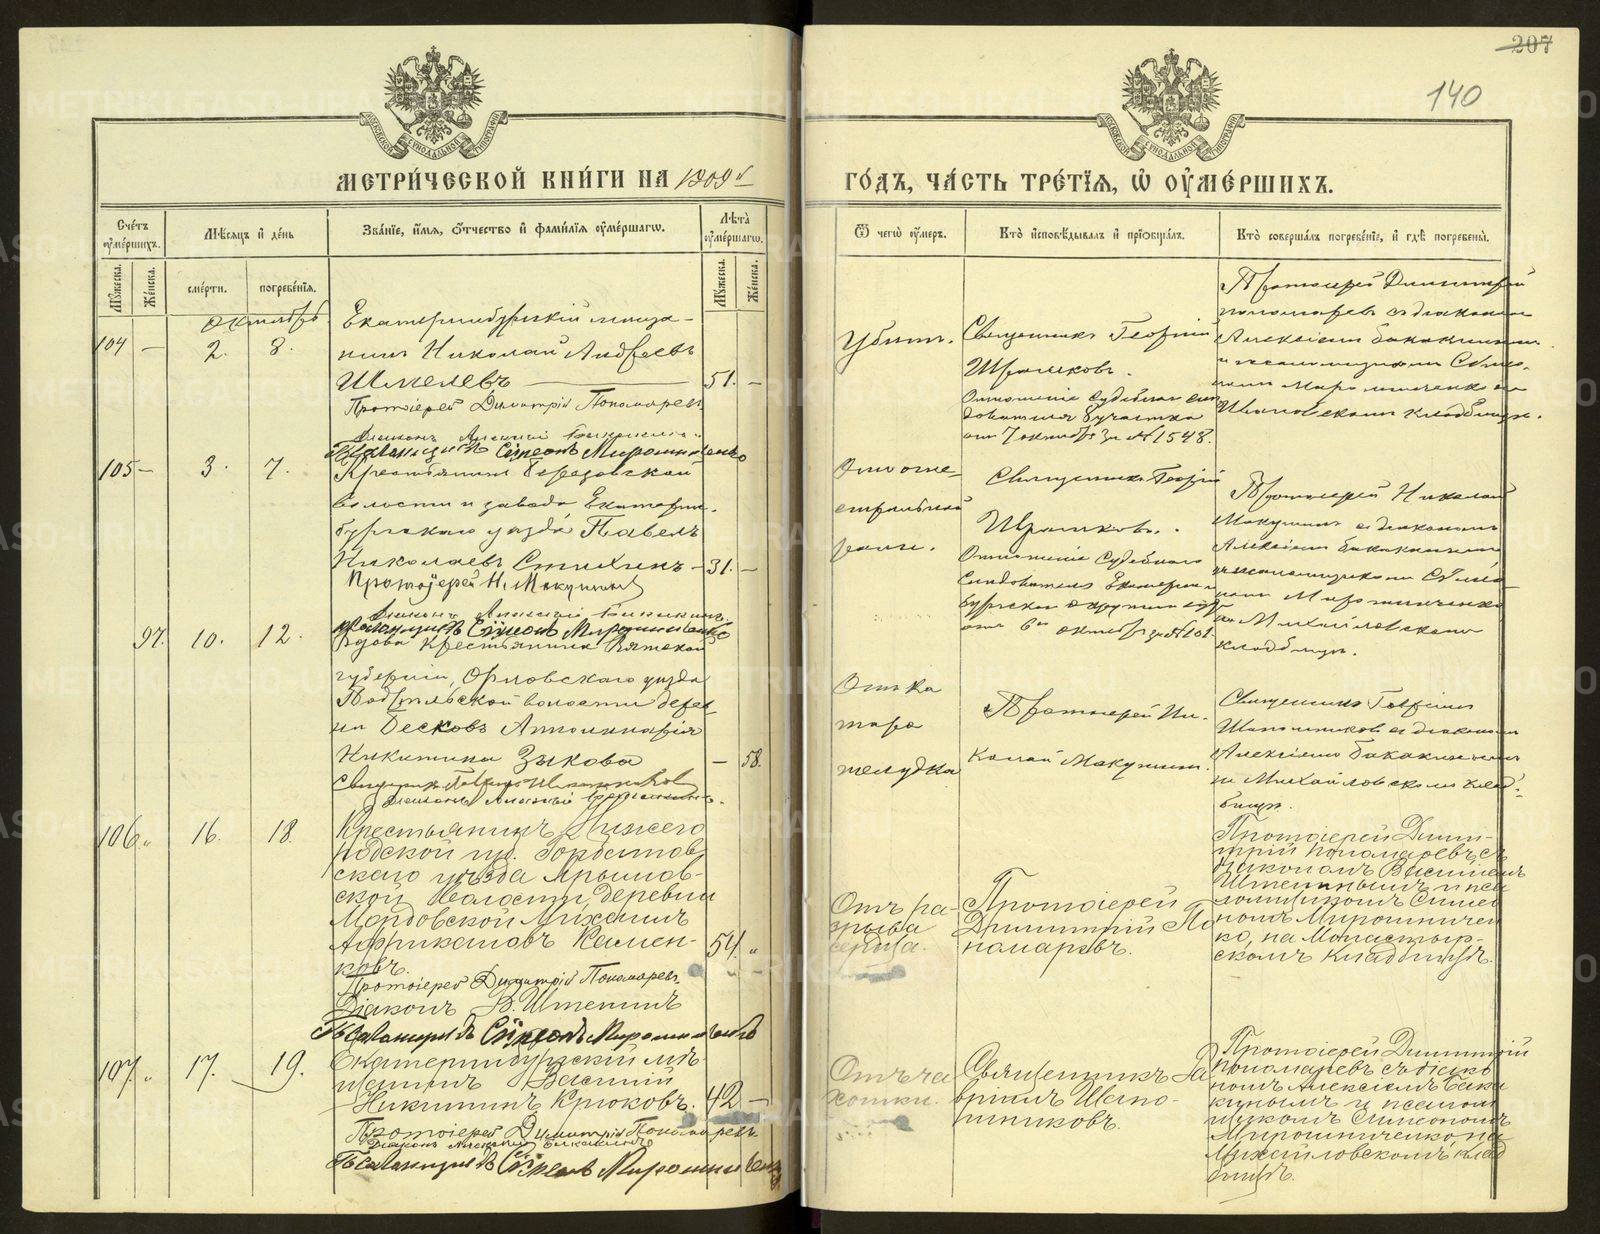 207
140
МЕТРИ́ЧЕСКОЙ КНИ́ГИ НА 1909й
ГО́ДЪ, ЧА́СТЬ ТРЕ́ТІѦ, Ѡ҆ ОУ҆МЕ́РШИХЪ.
Сче́тъ оу҆ме́ршихъ.
Мѣ́сѧцъ и҆ де́нь
Зва́нїе, и҆́мѧ, ѻ҆́тчество и҆ фами́лїѧ оу҆ме́ршагѡ.
Лѣ́та оу҆ме́ршагѡ.
Ѿ чегѡ̀ оу҆́меръ.
Кто̀ и҆сповѣ́дывалъ и҆ прїѡбща́лъ.
Кто̀ соверша́лъ погребе́нїе, и҆ гдѣ̀ погребены̀.
Мꙋ́жеска.
Же́нска.
сме́рти.
погребе́нїѧ.
Мꙋ́жеска.
Же́нска.
октябрь
104 — 2. 8.
Екатеринбургскій мѣща-
нинъ Николай Андреевъ
Шмелевъ — 51. —
Протоіерей Димитрій Пономаревъ
Діаконъ Алексій
Псаломщикъ Сѵмеонъ Мирошниченко
Убитъ.
Священникъ Георгій
Отношеніе Судебнаго Слѣ-
дователя 8 участка
отъ 7 октября за № 1548.
Протоіерей Димитрій
Пономаревъ съ діакономъ
Алексіемъ
и псаломщикомъ Сѵмео-
номъ Мирошниченко на
Ивановскомъ кладбищѣ.
105 — 3. 7.
Крестьянинъ Березовской
волости и завода Екатерин-
бургскаго уѣзда Павелъ
Николаевъ — 31. —
Протоіерей Н. Макушинъ
Діаконъ Алексій
Псаломщикъ Сѵмеонъ Мирошниченко
Отъ огне-
стрѣльной
раны.
Священникъ Георгій
Отношеніе Судебнаго
Слѣдователя Екатерин-
бургскаго
отъ 6го октября за № 101.
Протоіерей Николай
Макушинъ съ діакономъ
Алексіемъ
и псаломщикомъ Сѵмео-
номъ Мирошниченко
на Михайловскомъ
кладбищѣ.
97. 10. 12.
Вдова крестьянина Вятской
губерніи, Орловскаго уѣзда
волости дерев-
ни Бесковъ Апполинарія
Никитина Зыкова — 58.
Священникъ
Діаконъ Алексій
Отъ ка
тара
желудка
Протоіерей Ни-
колай Макушинъ.
Священникъ
съ діакономъ
Алексіемъ
на Михайловскомъ клад-
бищѣ.
106 „ 16. 18.
Крестьянинъ Нижего
родской губ. Горбатов
скаго уѣзда
ской Волости, деревни
Мордовской Михаилъ
Африкановъ Камен-
ковъ. 54. „
Протоіерей Димитрій Пономаревъ.
Діаконъ В. Штенинъ
Псаломщикъ Сѵмеонъ Мирошниченко
Отъ ра-
зрыва
сердца.
Протоіерей
Димитрій По
номаревъ.
Протоіерей Дими-
трій Пономаревъ съ
діакономъ Василіемъ
и пса
ломщикомъ Симео
номъ Мирошничен
ко, на Монастыр-
скомъ кладбищѣ.
107. „ 17. 19.
Екатеринбургскій мѣ-
щанинъ Василій
Никитинъ Крюковъ. 42 —
Протоіерей Димитрій Пономаревъ
Діаконъ Алексій
Псаломщикъ Сѵмеонъ Мирошниченко
Отъ ча
хотки.
Священникъ Га
вріилъ Шапо-
шниковъ.
Протоіерей Димитрій
Пономаревъ съ діако
номъ Алексіемъ
и псалом
щикомъ Симеономъ
Мирошниченко, на
Михайловскомъ клад
бищѣ.